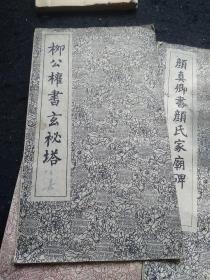 柳公權書玄秘塔
顏真卿書顏氏家廟碑